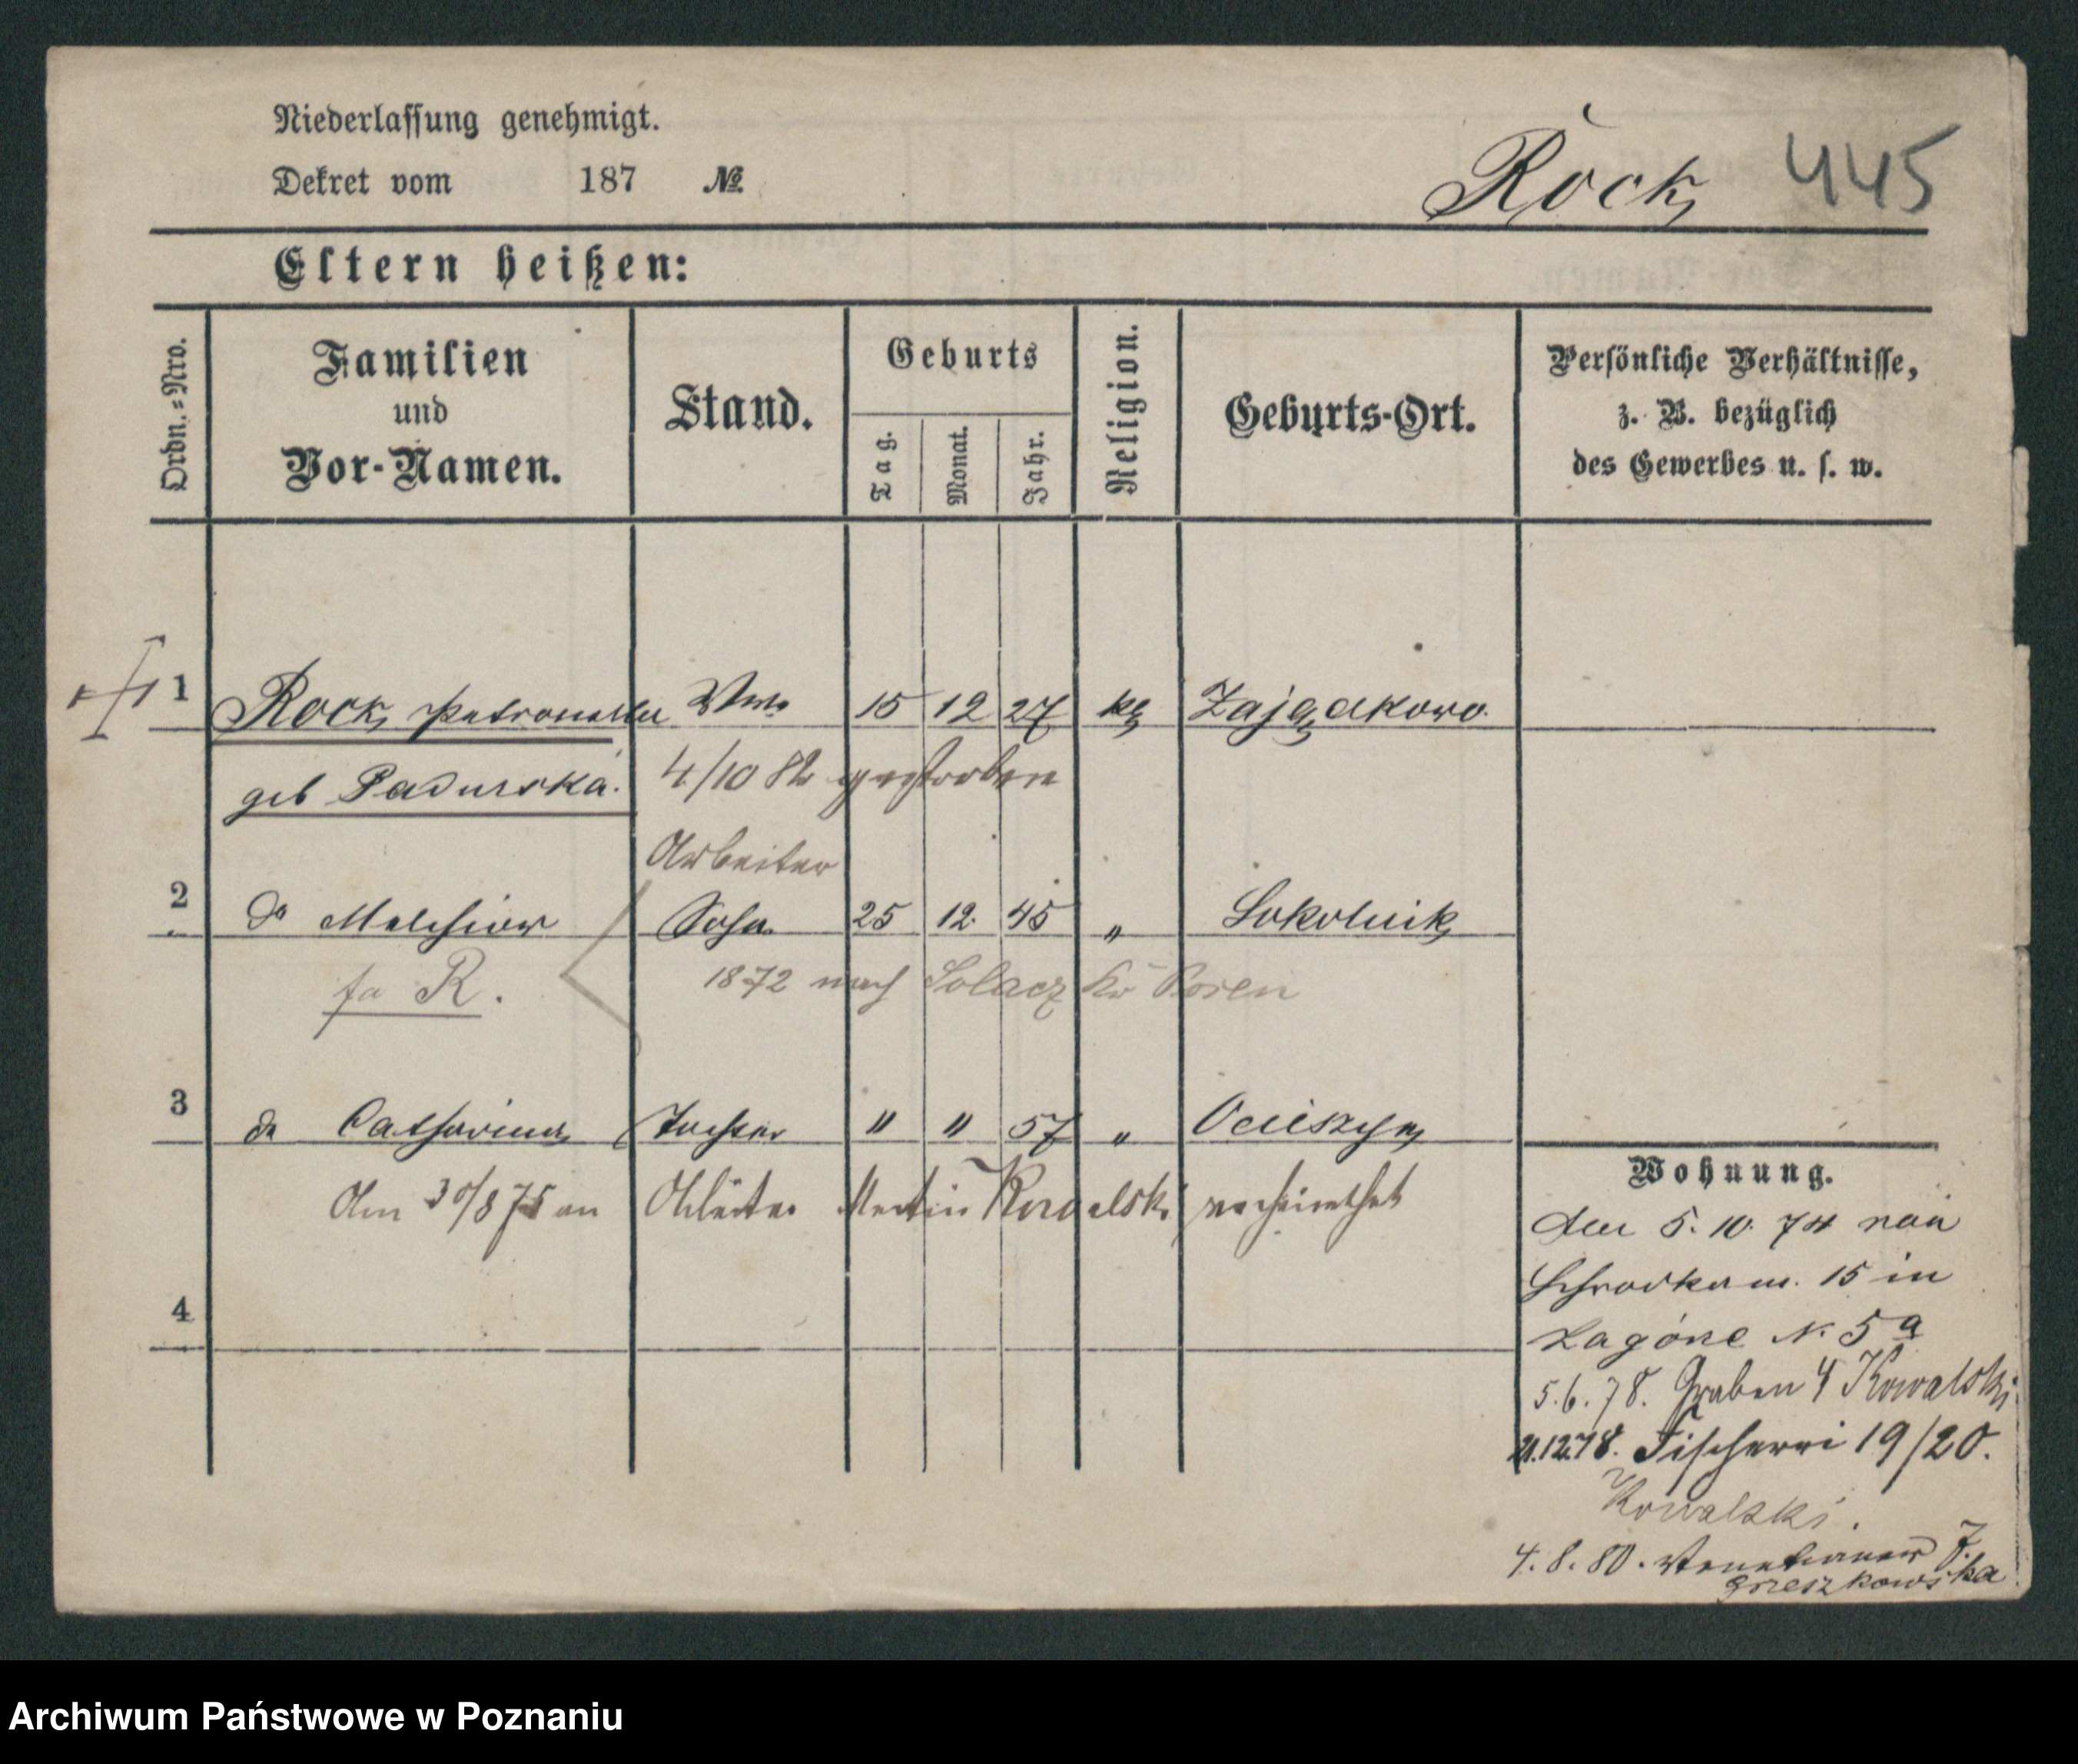 Niederlassung genehmigt.
Dekret vom 187 №
Rock 445
Eltern heißen:
Ordn.-Nro. Familien und Vor-Namen. Stand. Geburts Tag. Monat. Jahr. Religion. Geburts-Ort. Persönliche Verhältnisse, z. B. bezüglich des Gewerbes u. s. w.
1 Rock Petronella Ww. 15 12 27 kg
geb Padurska. 4/10 82 gestorben
Arbeiter
2 do Melchior Sohn 25 12. 45 „ Sokolnik
fa R.
1872 nach Solacz Kr Posen
3 do Catharina Tochter " " 57 „
Am 30/8 75 an Arbeiter Martin Kowalski verheirathet
4
Wohnung.
den 5. 10. 74 von
Schrodkam. 15 in
Zagórze N. 5a
5. 6. 78. Graben 4 Kowalski
21.12.78. Fischerei 19/20.
Kowalski.
4. 8. 80. Venetianer 7.
Grzeszkowska
Archiwum Państwowe w Poznaniu